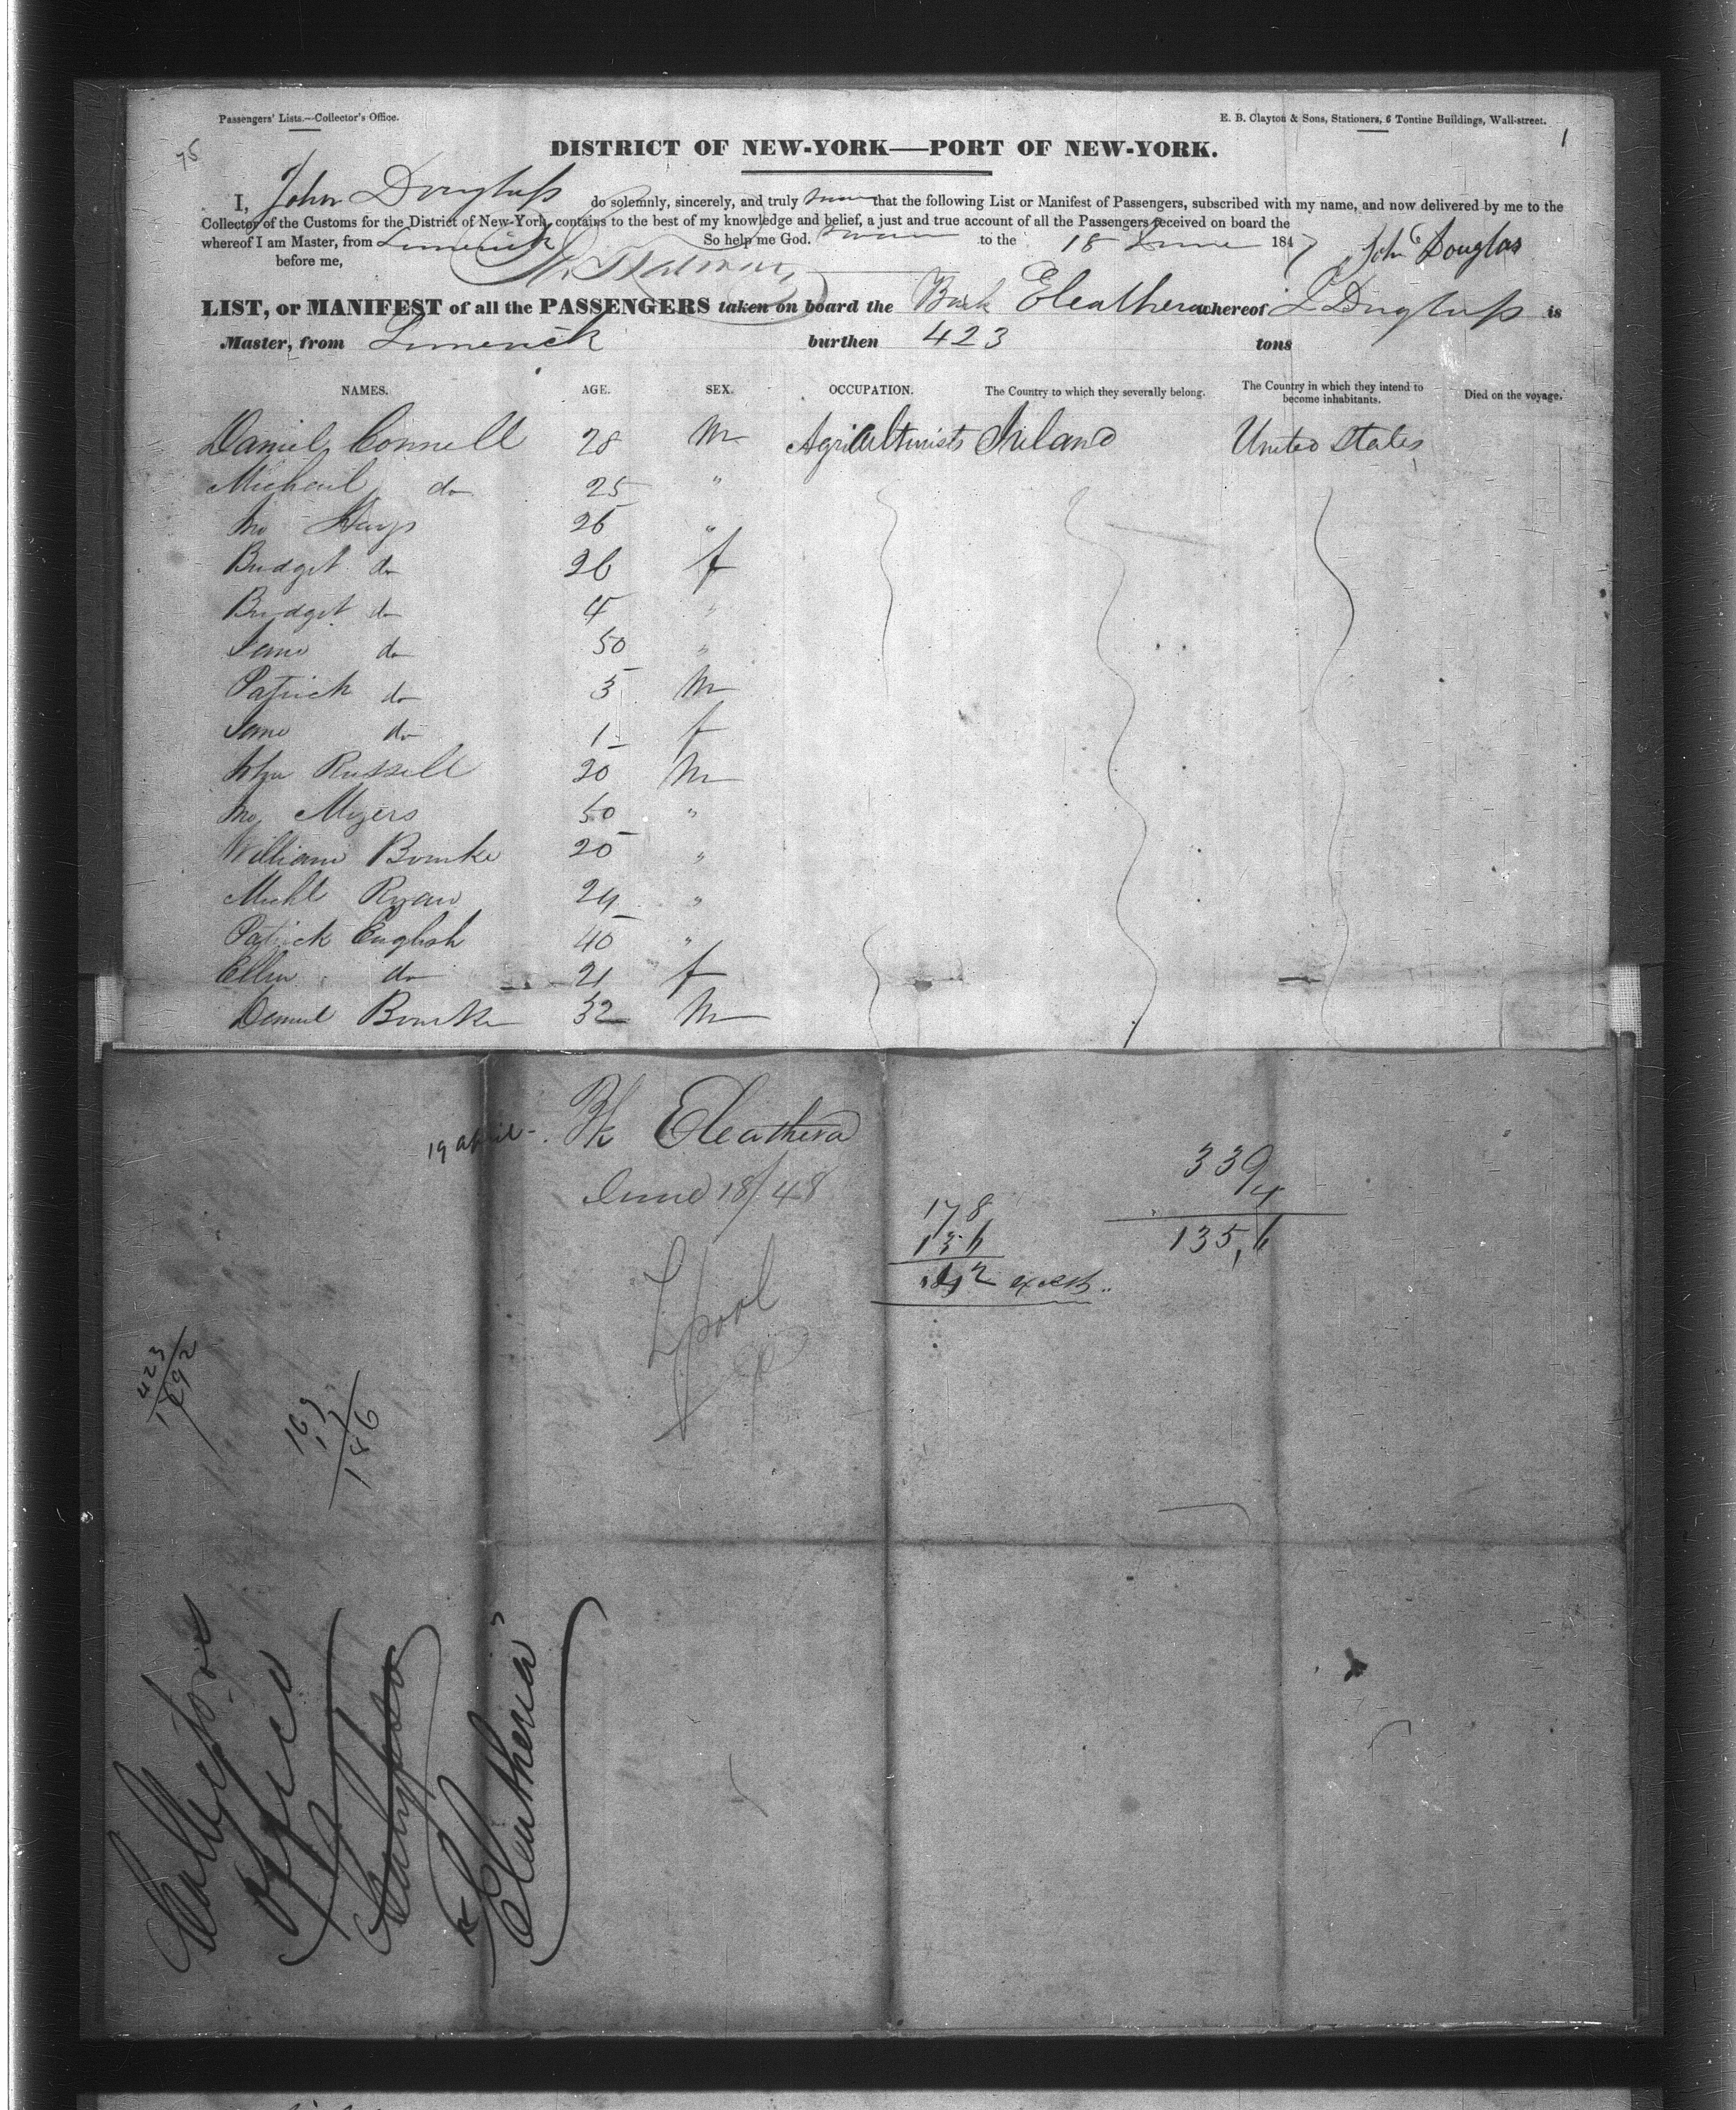 Passengers' Lists.—Collector's Office.
E. B. Clayton & Sons, Stationers, 6 Tontine Buildings, Wall-street.
75
1
DISTRICT OF NEW-YORK—PORT OF NEW-YORK.
I, John Douglass do solemnly, sincerely, and truly swear that the following List or Manifest of Passengers, subscribed with my name, and now delivered by me to the
Collector of the Customs for the District of New-York, contains to the best of my knowledge and belief, a just and true account of all the Passengers received on board the
whereof I am Master, from Limerick So help me God. Sworn to the 18 June 1847 John Douglas
before me,
LIST, or MANIFEST of all the PASSENGERS taken on board the Bark Eleathera whereof J Douglass is
Master, from Limerick burthen 423 tons
NAMES. AGE. SEX. OCCUPATION. The Country to which they severally belong. The Country in which they intend to become inhabitants. Died on the voyage.
Daniel Connell 28 M Agriculturists Ireland United States
Michael do 25 "
Jno Hays 26 "
Bridget do 26 f
Bridget do 4 "
Jane do 50 "
Patrick do 3 M
Jane do 1 f
John Russell 20 M
Jno Myers 50 "
William Bourke 20 "
Michl Ryan 24 "
Patrick English 40 "
Ellen do 21 f
Daniel Bourke 32 M
19 april - Bk Eleathera
June 18/48
339
4
135,6
178
136
42 excess
Lpool
423
1692
169
17
186
Collectors
office
Calypso
&
"Eleutheria"